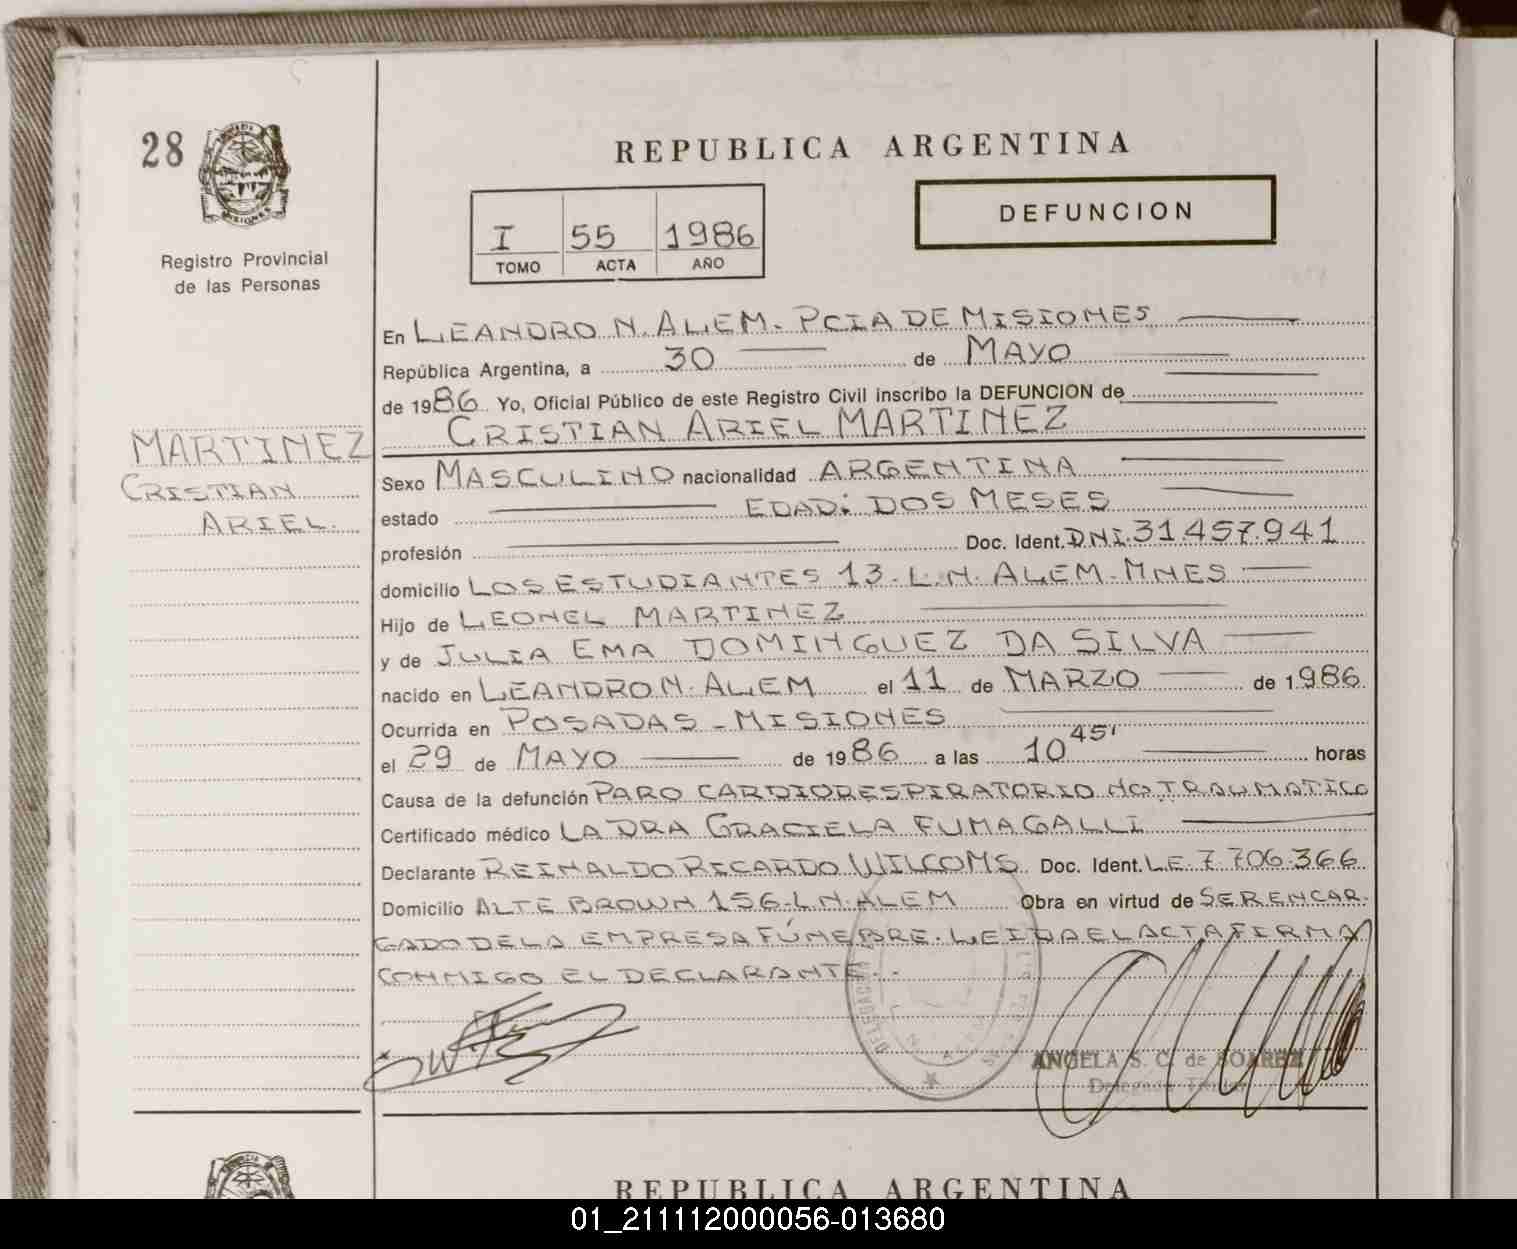 28
MISIONES
Registro Provincial
de las Personas
REPUBLICA ARGENTINA
I 55 1986
TOMO ACTA AÑO
DEFUNCION
En LEANDRO N. ALEM. PCIA DE MISIONES
República Argentina, a 30 de MAYO
de 1986. Yo, Oficial Público de este Registro Civil inscribo la DEFUNCION de
CRISTIAN ARIEL MARTINEZ
MARTINEZ
CRISTIAN
ARIEL.
Sexo MASCULINO nacionalidad ARGENTINA
estado EDAD: DOS MESES
profesión Doc. Ident. DNI. 31.457.941
domicilio LOS ESTUDIANTES 13. L. N. ALEM. MNES
Hijo de LEONEL MARTINEZ
y de JULIA EMA DOMINGUEZ DA SILVA
nacido en LEANDRO N. ALEM el 11 de MARZO de 1986
Ocurrida en POSADAS - MISIONES
el 29 de MAYO de 1986 a las 10 45' horas
Causa de la defunción PARO CARDIORESPIRATORIO NO TRAUMATICO
Certificado médico LA DRA GRACIELA FUMAGALLI
Declarante REINALDO RICARDO WILCOMS Doc. Ident. L.E. 7.706.366
Domicilio ALTE BROWN 156. L. N. ALEM Obra en virtud de SER ENCAR-
GADO DE LA EMPRESA FÚNEBRE. LEIDA EL ACTA FIRMA
CONMIGO EL DECLARANTE.
ANGELA S. C. de SOAREZ
REPUBLICA ARGENTINA
01_211112000056-013680